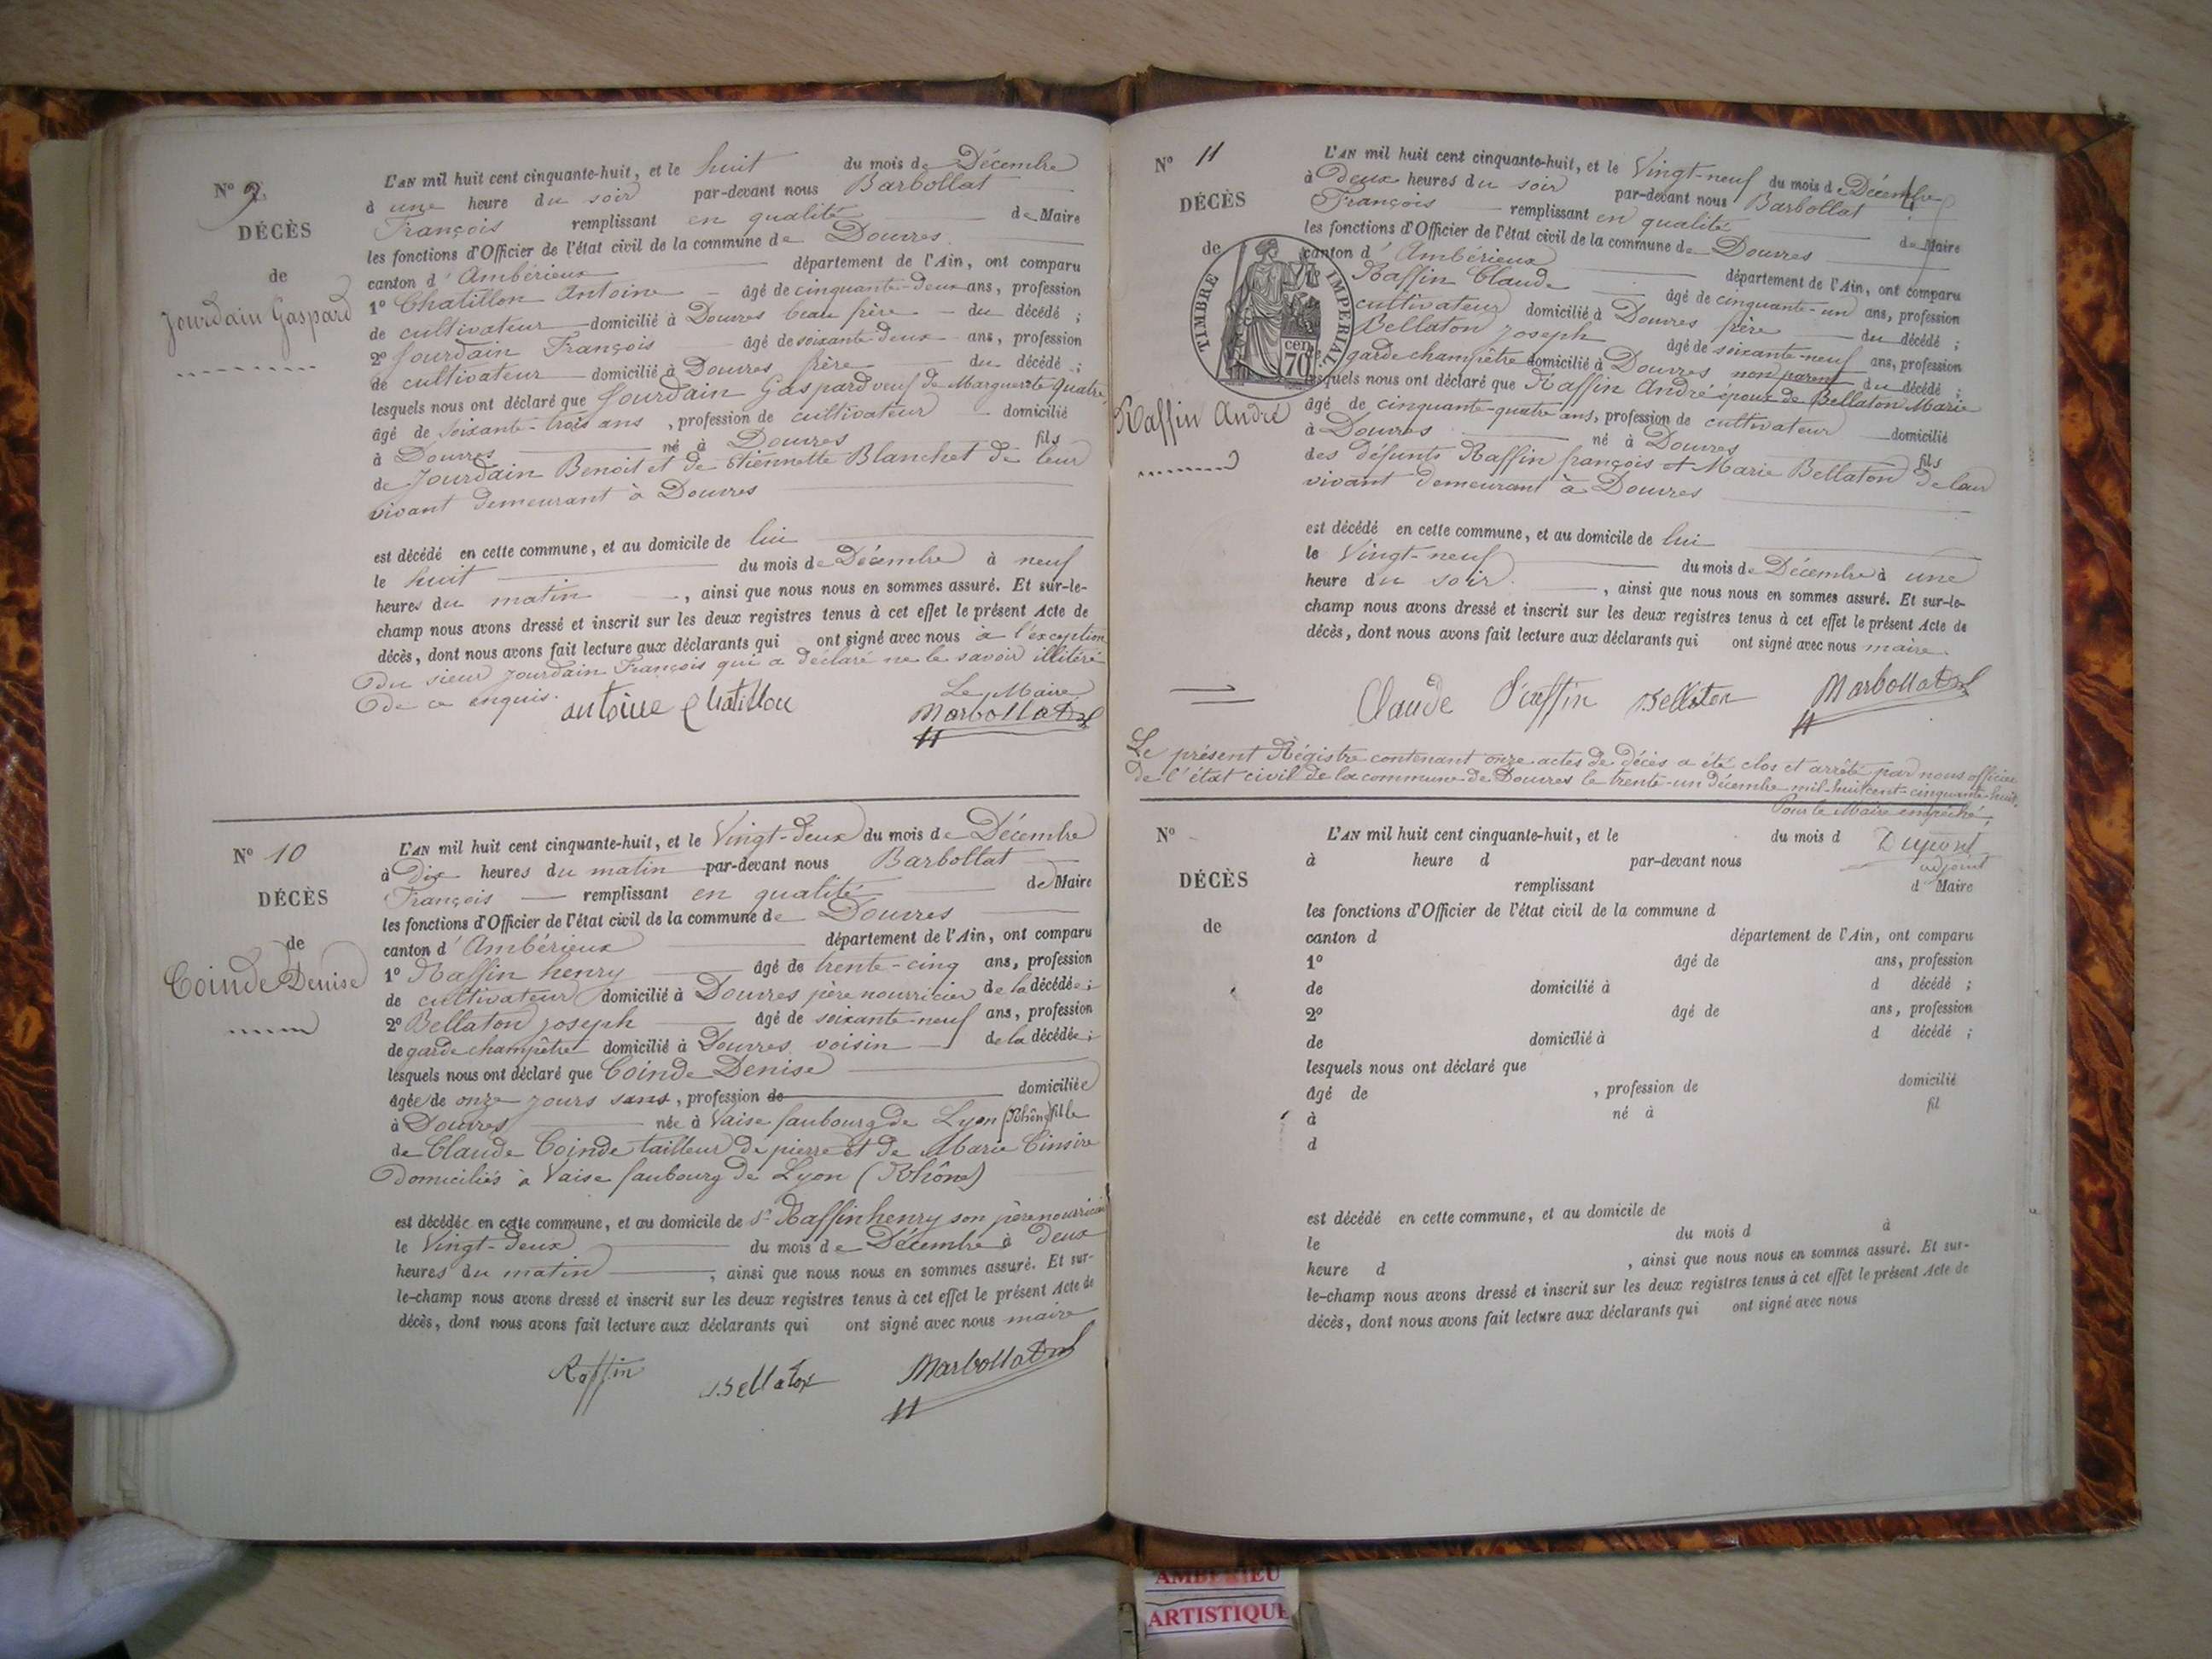 N° 9
DÉCÈS
de
Jourdain Gaspard
L'AN mil huit cent cinquante-huit, et le huit du mois de Décembre
à une heure du soir par-devant nous Barbollat
François remplissant en qualité de Maire
les fonctions d'Officier de l'état civil de la commune de Douvres
canton d'Ambérieux département de l'Ain, ont comparu
1° Chatillon Antoine âgé de cinquante-deux ans, profession
de cultivateur domicilié à Douvres beau frère du décédé ;
2° Jourdain François âgé de soixante deux ans, profession
de cultivateur domicilié à Douvres frère du décédé ;
lesquels nous ont déclaré que Jourdain Gaspard veuf de Marguerite Quatre,
âgé de soixante-trois ans, profession de cultivateur domicilié
à Douvres né à Douvres fils
de Jourdain Benoit et de Etiennette Blanchet de leur
vivant demeurant à Douvres
est décédé en cette commune, et au domicile de lui
le huit du mois de Décembre à neuf
heures du matin, ainsi que nous nous en sommes assuré. Et sur-le-
champ nous avons dressé et inscrit sur les deux registres tenus à cet effet le présent Acte de
décès, dont nous avons fait lecture aux déclarants qui ont signé avec nous à l'exception
du sieur Jourdain François qui a déclaré ne le savoir illitéré
de ce enquis.
Le Maire
antoine chatillon Barbollat
N° 10
DÉCÈS
de
Coinde Denise
L'AN mil huit cent cinquante-huit, et le Vingt-deux du mois de Décembre
à Dix heures du matin par-devant nous Barbollat
François remplissant en qualité de Maire
les fonctions d'Officier de l'état civil de la commune de Douvres
canton d'Ambérieux département de l'Ain, ont comparu
1° Raffin henry âgé de trente-cinq ans, profession
de cultivateur domicilié à Douvres père nourricier de la décédée ;
2° Bellaton joseph âgé de soixante-neuf ans, profession
de garde champêtre domicilié à Douvres voisin de la décédée ;
lesquels nous ont déclaré que Coinde Denise
âgée de onze jours sans, profession de domiciliée
à Douvres née à Vaise faubourg de Lyon (Rhône) fille
de Claude Coinde tailleur de pierre et de Marie Cinsire
Domiciliés à Vaise faubourg de Lyon (Rhône)
est décédée en cette commune, et au domicile de Sr Raffin henry son père nourricier
le Vingt-deux du mois de Décembre à deux
heures du matin, ainsi que nous nous en sommes assuré. Et sur-
le-champ nous avons dressé et inscrit sur les deux registres tenus à cet effet le présent Acte de
décès, dont nous avons fait lecture aux déclarants qui ont signé avec nous maire
Raffin Bellaton Barbollat
N° 11
DÉCÈS
de
TIMBRE IMPERIAL
70 cen
Raffin André
L'AN mil huit cent cinquante-huit, et le Vingt-neuf du mois de Décembre
à Deux heures du soir par-devant nous Barbollat
François remplissant en qualité de Maire
les fonctions d'Officier de l'état civil de la commune de Douvres
canton d'Ambérieux département de l'Ain, ont comparu
Raffin Claude âgé de cinquante-un ans, profession
cultivateur domicilié à Douvres frère du décédé ;
Bellaton joseph âgé de soixante-neuf ans, profession
garde champêtre domicilié à Douvres non parent du décédé ;
lesquels nous ont déclaré que Raffin André époux de Bellaton Marie
âgé de cinquante-quatre ans, profession de cultivateur domicilié
à Douvres né à Douvres fils
des défunts Raffin françois et Marie Bellaton de leur
vivant demeurant à Douvres
est décédé en cette commune, et au domicile de lui
le Vingt-neuf du mois de Décembre à une
heure du soir, ainsi que nous nous en sommes assuré. Et sur-le-
champ nous avons dressé et inscrit sur les deux registres tenus à cet effet le présent Acte de
décès, dont nous avons fait lecture aux déclarants qui ont signé avec nous maire.
Claude Raffin Bellaton Barbollat
Le présent Régistre contenant onze actes de décès a été clos et arrêté par nous officier
de l'état civil de la commune de Douvres le trente-un décembre mil-huit cent-cinquante-huit.
Pour le Maire empêché,
Dupont
adjoint
N°
DÉCÈS
de
L'AN mil huit cent cinquante-huit, et le du mois d
à heure d par-devant nous
remplissant d Maire
les fonctions d'Officier de l'état civil de la commune d
canton d département de l'Ain, ont comparu
1° âgé de ans, profession
de domicilié à d décédé ;
2° âgé de ans, profession
de domicilié à d décédé ;
lesquels nous ont déclaré que
âgé de , profession de domicilié
à né à fil
d
est décédé en cette commune, et au domicile de
le du mois d à
heure d , ainsi que nous nous en sommes assuré. Et sur-
le-champ nous avons dressé et inscrit sur les deux registres tenus à cet effet le présent Acte de
décès, dont nous avons fait lecture aux déclarants qui ont signé avec nous
AMBERIEU
ARTISTIQUE